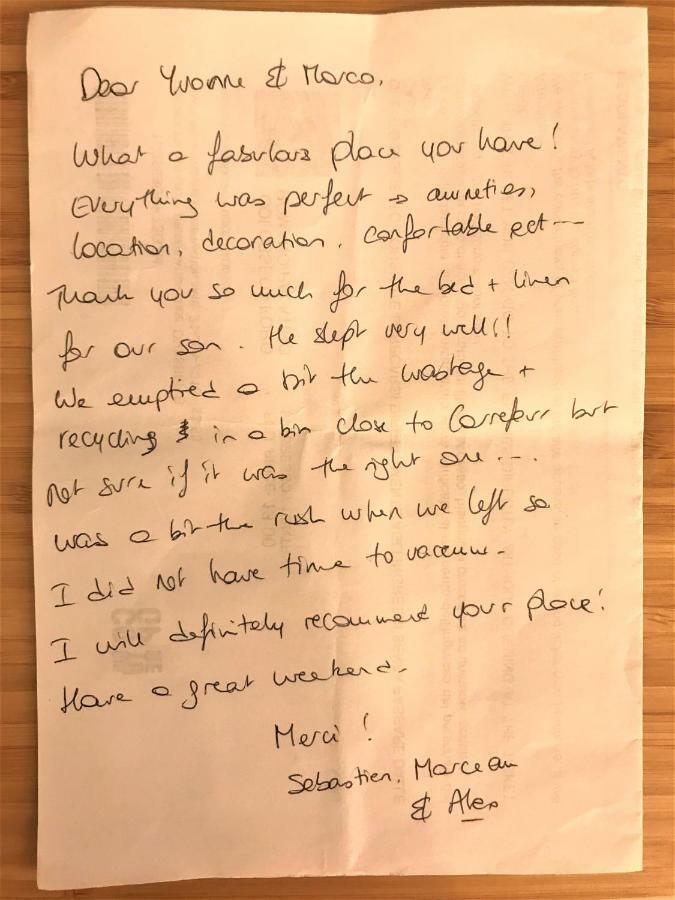 Dear Yvonne & Marco,
What a fabulous place you have!
Everything was perfect → amneties,
location, decoration, confortable ect---
Thank you so much for the bed + linen
for our son. He slept very well!!
We emptied a bit the wastage +
recycling in a bin close to Carrefour but
not sure if it was the right one ---.
was a bit the rush when we left so
I did not have time to vacuum-
I will definitely recommend your place!
Have a great weekend-
Merci!
Sebastien, Marceau
& Alex